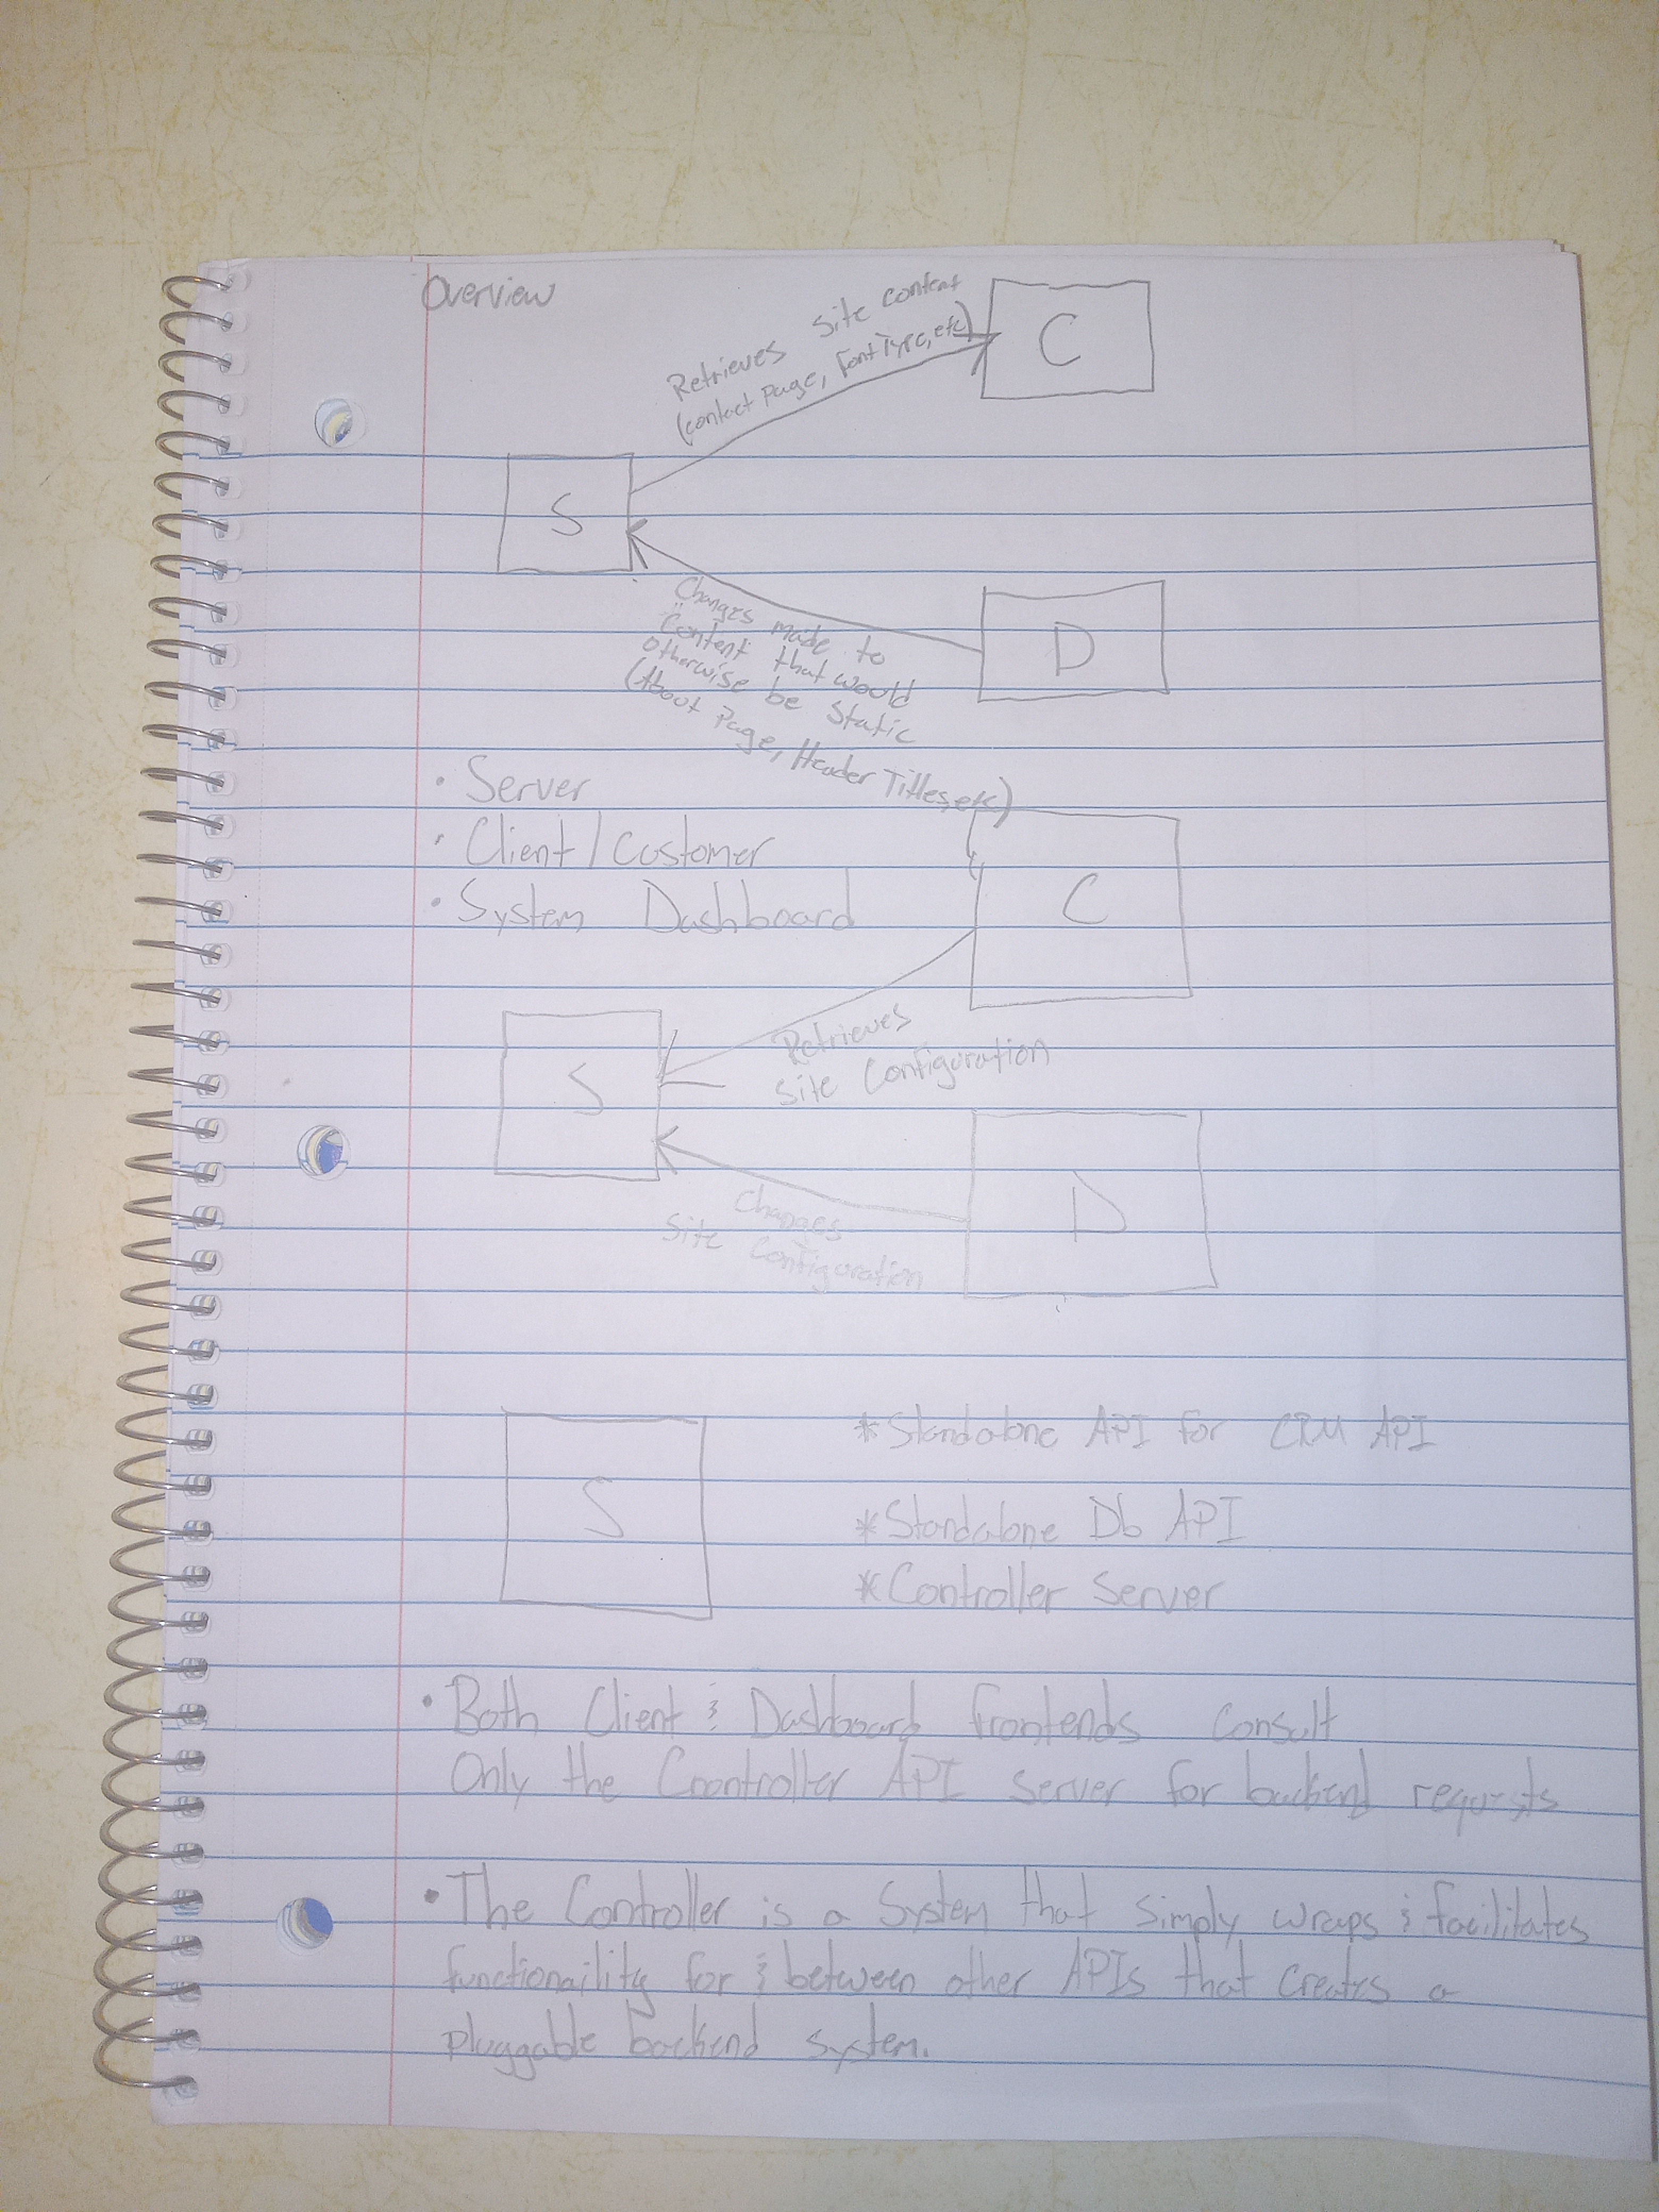 Overview
Retrieves Site content
(contact Page, Font Type, etc)
C
S
D
Changes made to
"Content that would
otherwise be Static
(About Page, Header Titles, etc)
• Server
• Client/Customer
• System Dashboard
C
Retrieves
Site Configuration
S
D
Changes
Site Configuration
S
*Standalone API for CRM API
*Standalone Db API
*Controller Server
• Both Client & Dashboard frontends consult
Only the Crontroller API server for backend requests
• The Controller is a System that simply wraps & facilitates
functionaility for & between other APIs that creates a
pluggable backend system.